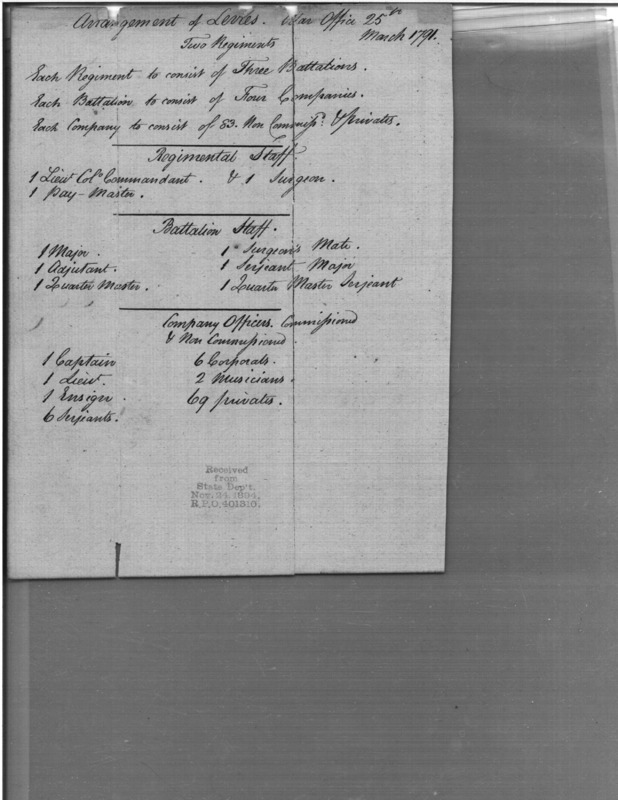 Arrangement of Levies. War Office 25th
March 1791.
Two Regiments
Each Regiment to consist of Three Battalions.
Each Battalion to consist of Four Companies.
Each Company to consist of 83. Non Commissd. & privates.
Regimental Staff.
1 Lieut Colo. Commandant. & 1 Surgeon.
1 Pay-Master.
Battalion Staff.
1 Major. 1 Surgeon's Mate.
1 Adjutant. 1 Serjeant Major
1 Quarter Master. 1 Quarter Master Serjeant
Company Officers. Commissioned
& Non Commissioned.
1 Captain 6 Corporals.
1 Lieut. 2 Musicians.
1 Ensign. 69 privates.
6 Serjeants.
Received
from
State Dep't.
Nov. 24, 1894,
R.P.O. 401310.